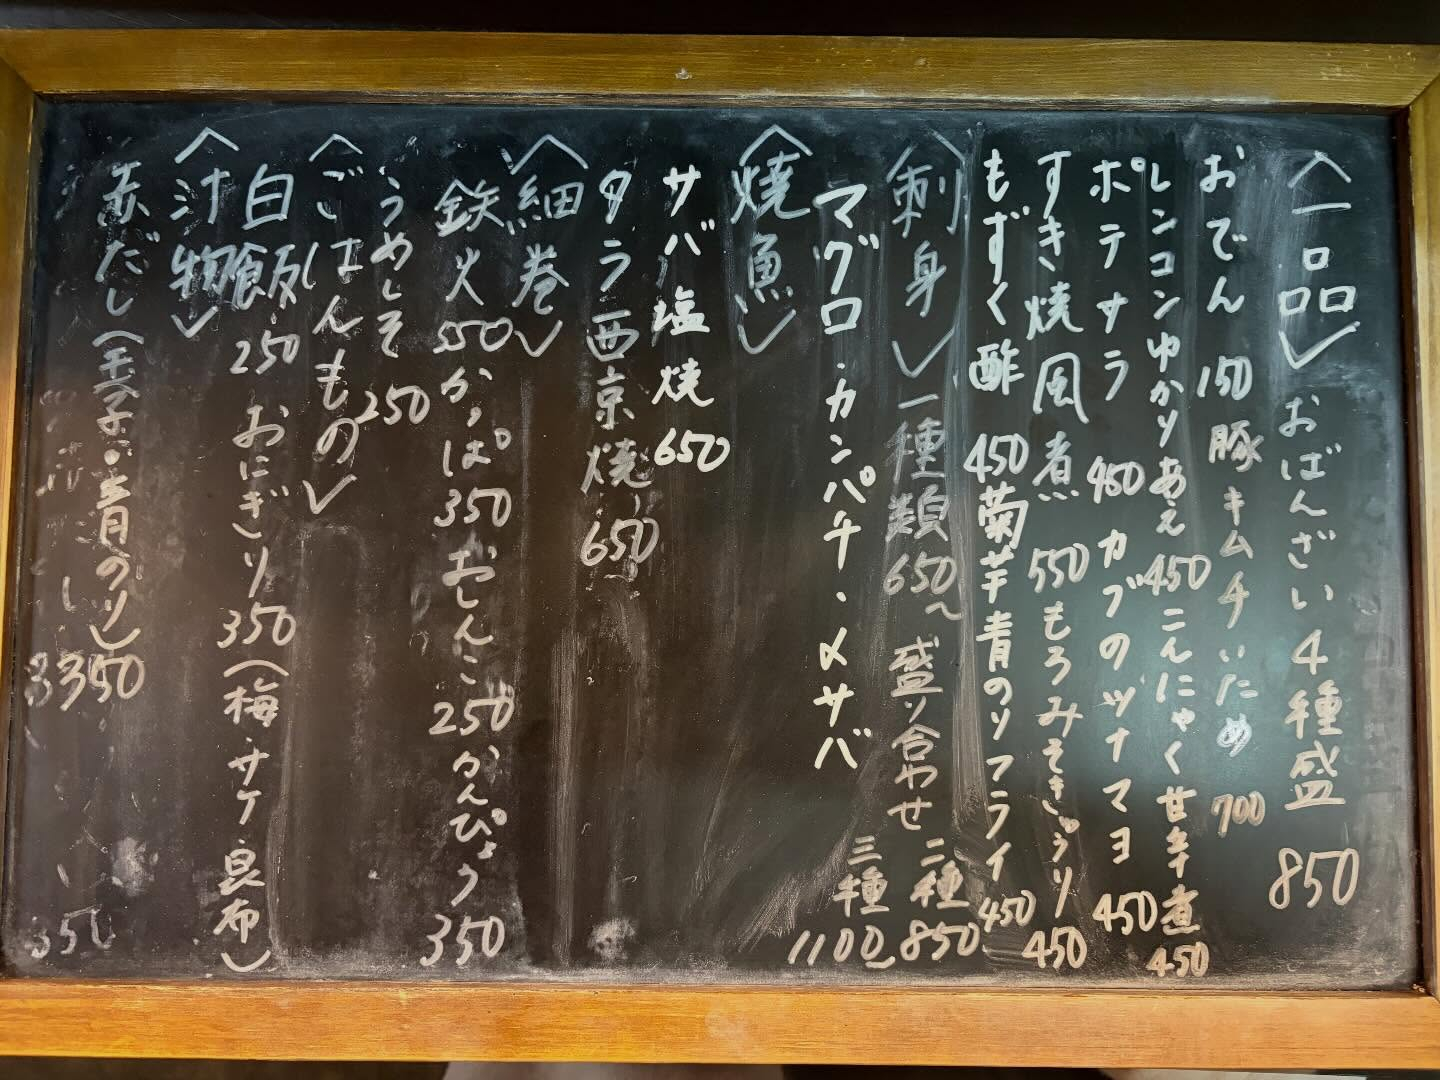 〈一品〉おばんざい4種盛 850
おでん 150 豚キムチいため 700
レンコンゆかりあえ 450 こんにゃく甘辛煮 450
ポテサラ 450 カブのツナマヨ 450
すき焼風煮 550 もろみそきゅうり 450
もずく酢 450 菊芋青のりフライ 450
〈刺身〉一種類650〜 盛り合わせ 二種850
三種1100
マグロ・カンパチ・〆サバ
〈焼魚〉
サバ塩焼 650
タラ西京焼 650
〈細巻〉
鉄火 550 かっぱ 350 おしんこ 250 かんぴょう 350
うめしそ 250
〈ごはんもの〉
白飯 250 おにぎり 350 (梅・サケ・昆布)
〈汁物〉
赤だし(玉子・青のり) 350
350